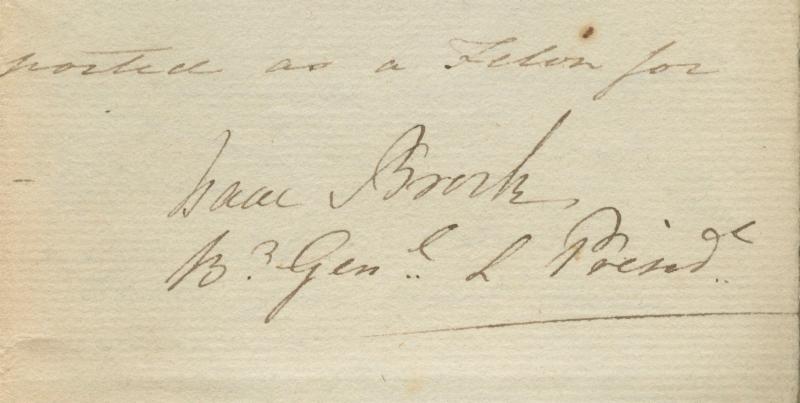 ported as a Felon for
Isaac Brock
B.r Gen.l & Presid.t